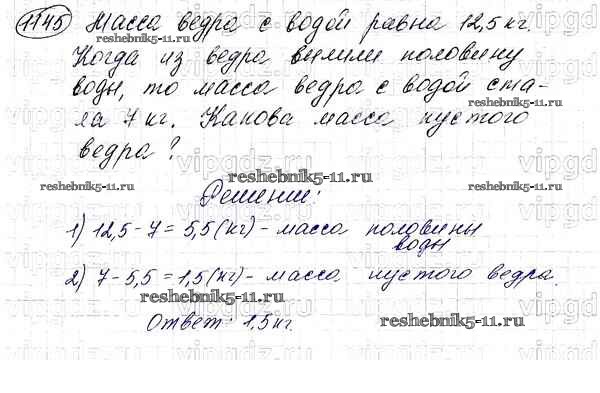 1145 Масса ведра с водой равна 12,5 кг.
Когда из ведра вылили половину
воды, то масса ведра с водой ста-
ла 7 кг. Какова масса пустого
ведра?
Решение:
1) 12,5 - 7 = 5,5 (кг) - масса половины
воды
2) 7 - 5,5 = 1,5 (кг) - масса пустого ведра.
Ответ: 1,5 кг.
reshebnik5-11.ru
reshebnik5-11.ru
reshebnik5-11.ru
reshebnik5-11.ru
reshebnik5-11.ru
reshebnik5-11.ru
reshebnik5-11.ru
vipgdz.ru